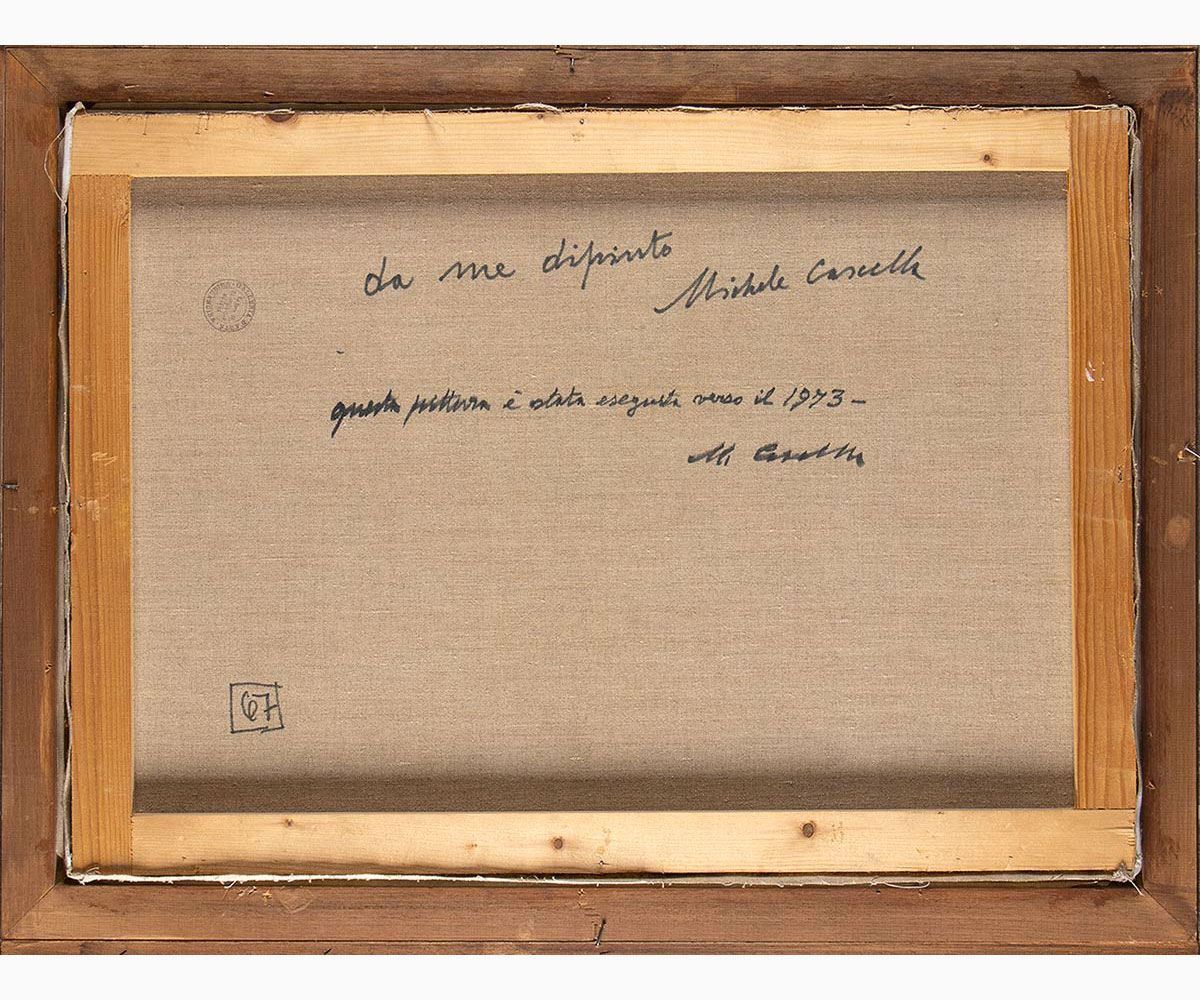 da me dipinto
Michele Cascella
questa pittura è stata eseguita verso il 1973 –
M. Cascella
67